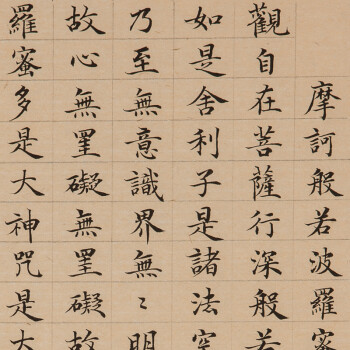 摩訶般若波羅蜜
觀自在菩薩行深般若
如是舍利子是諸法空
乃至無意識界無〻明
故心無罣礙無罣礙故
羅蜜多是大神咒是大